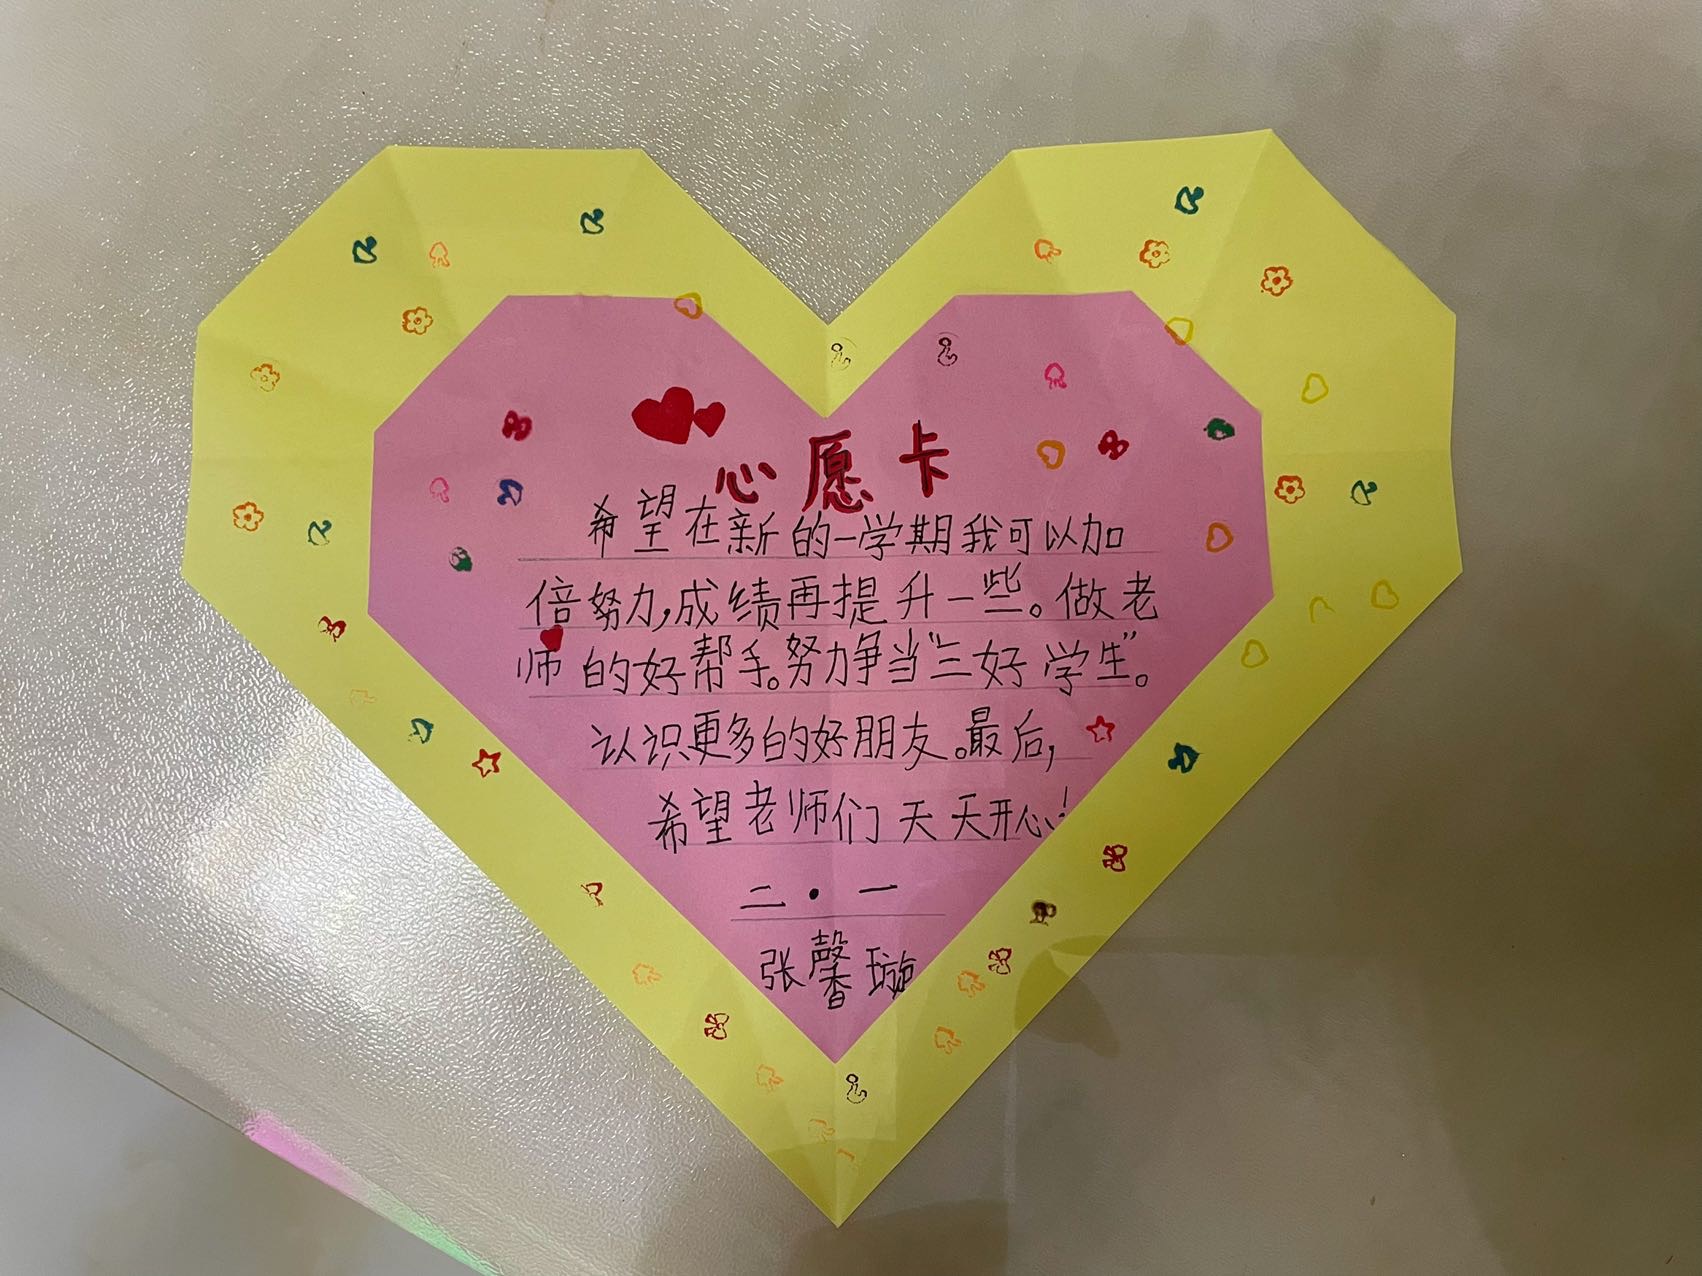 心愿卡
希望在新的一学期我可以加
倍努力,成绩再提升一些。做老
师的好帮手。努力争当“三好学生”。
认识更多的好朋友。最后,
希望老师们天天开心!
二·一
张馨璇